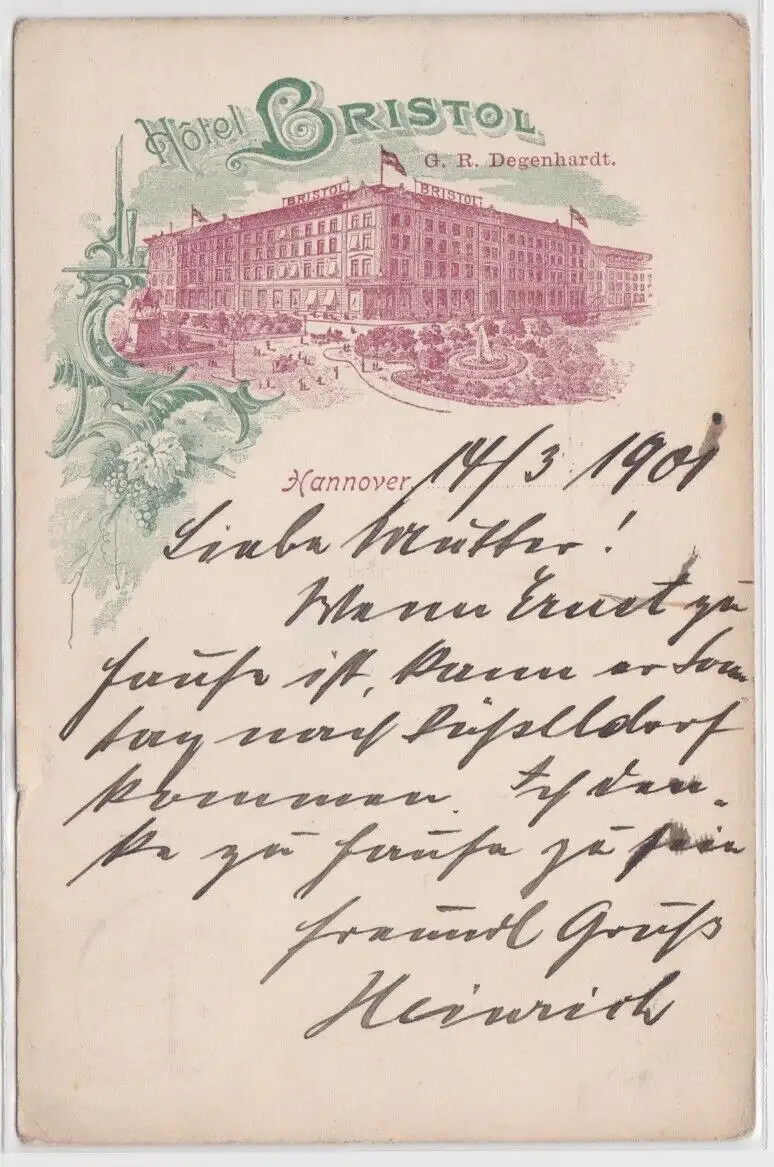 Hôtel BRISTOL
G. R. Degenhardt.
BRISTOL BRISTOL
Hannover, 14/3 1901
Liebe Mutter!
Wenn Ernst zu
Hause ist, kann er Sonn-
tag nach Düsselldorf
kommen. Ich den-
ke zu Hause zu sein
freundl Gruß
Heinrich